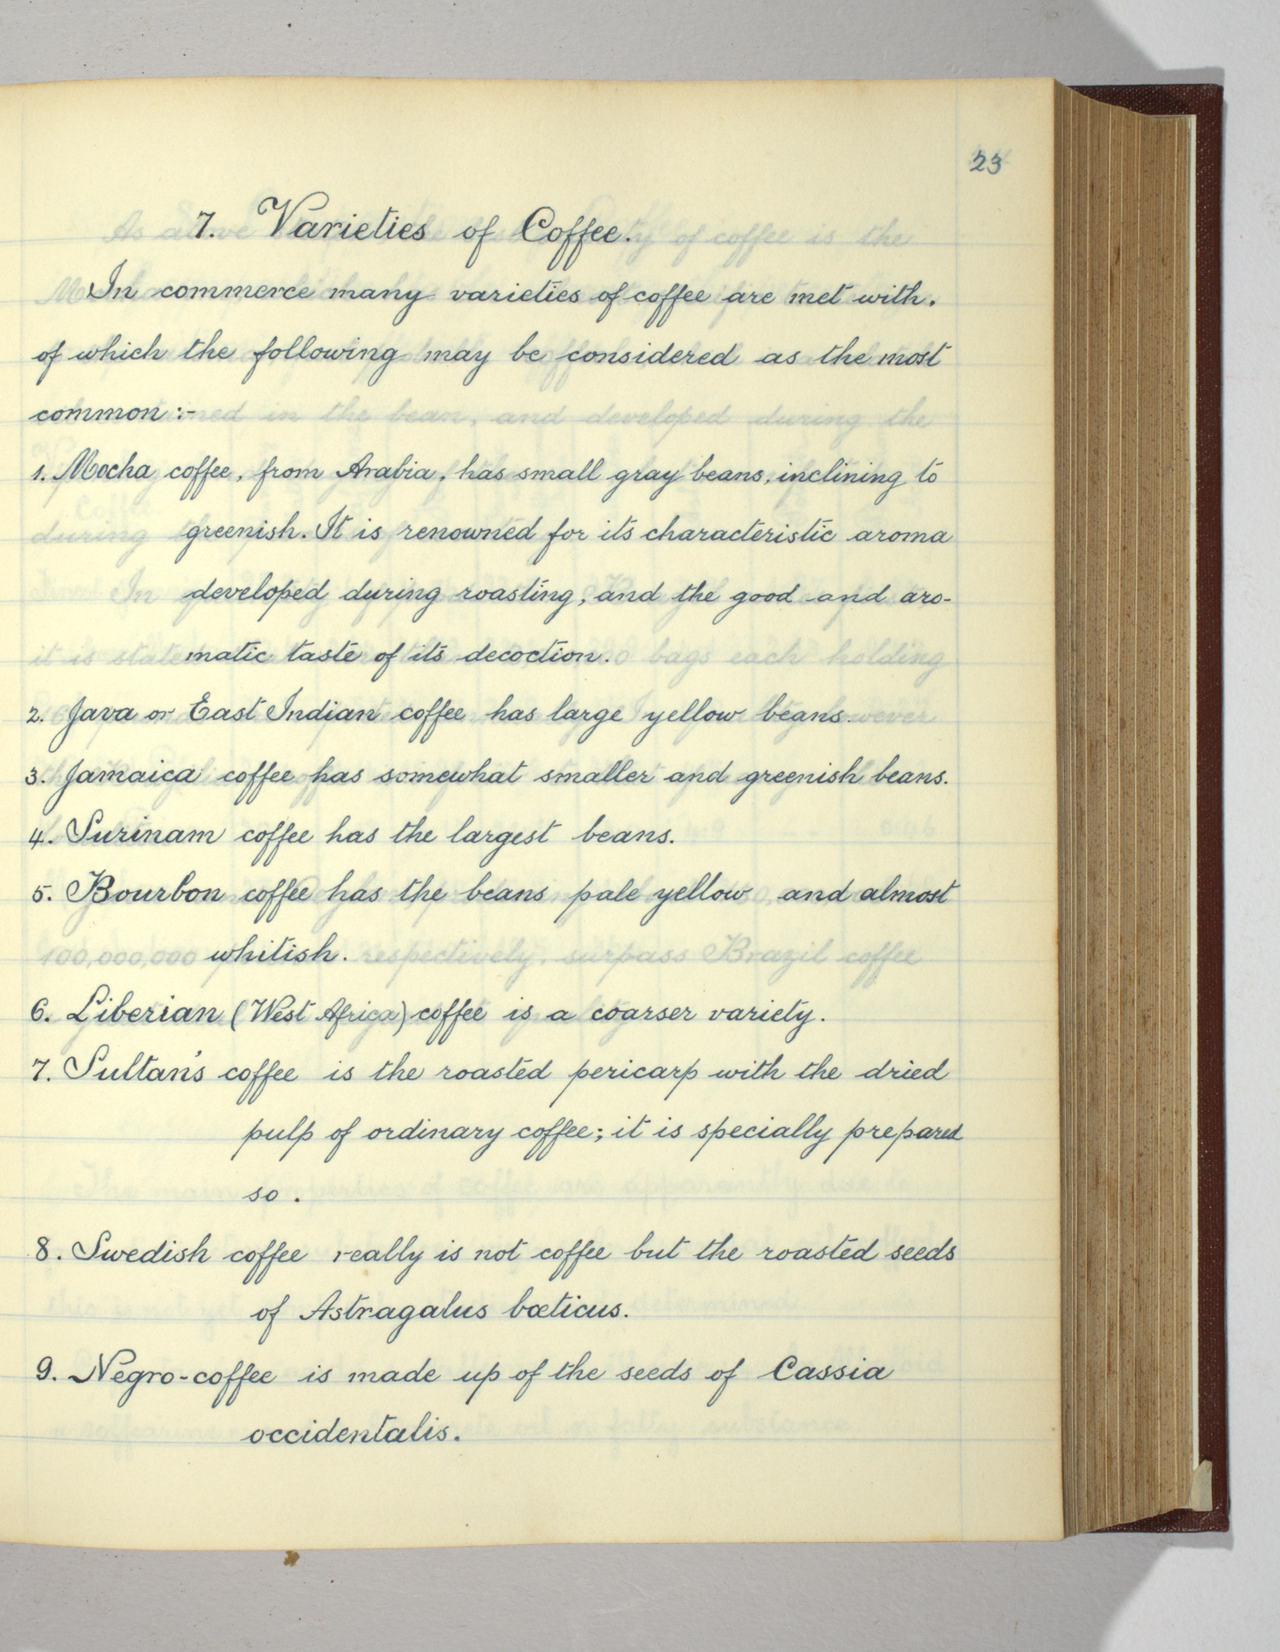 23
7. Varieties of Coffee.
In commerce many varieties of coffee are met with.
of which the following may be considered as the most
common :-
1. Mocha coffee, from Arabia, has small gray beans, inclining to
greenish. It is renowned for its characteristic aroma
developed during roasting, and the good and aro-
matic taste of its decoction.
2. Java or East Indian coffee has large yellow beans.
3. Jamaica coffee has somewhat smaller and greenish beans.
4. Surinam coffee has the largest beans.
5. Bourbon coffee has the beans pale yellow and almost
whitish.
6. Liberian (West Africa) coffee is a coarser variety.
7. Sultan's coffee is the roasted pericarp with the dried
pulp of ordinary coffee; it is specially prepared
so.
8. Swedish coffee really is not coffee but the roasted seeds
of Astragalus bœticus.
9. Negro-coffee is made up of the seeds of Cassia
occidentalis.